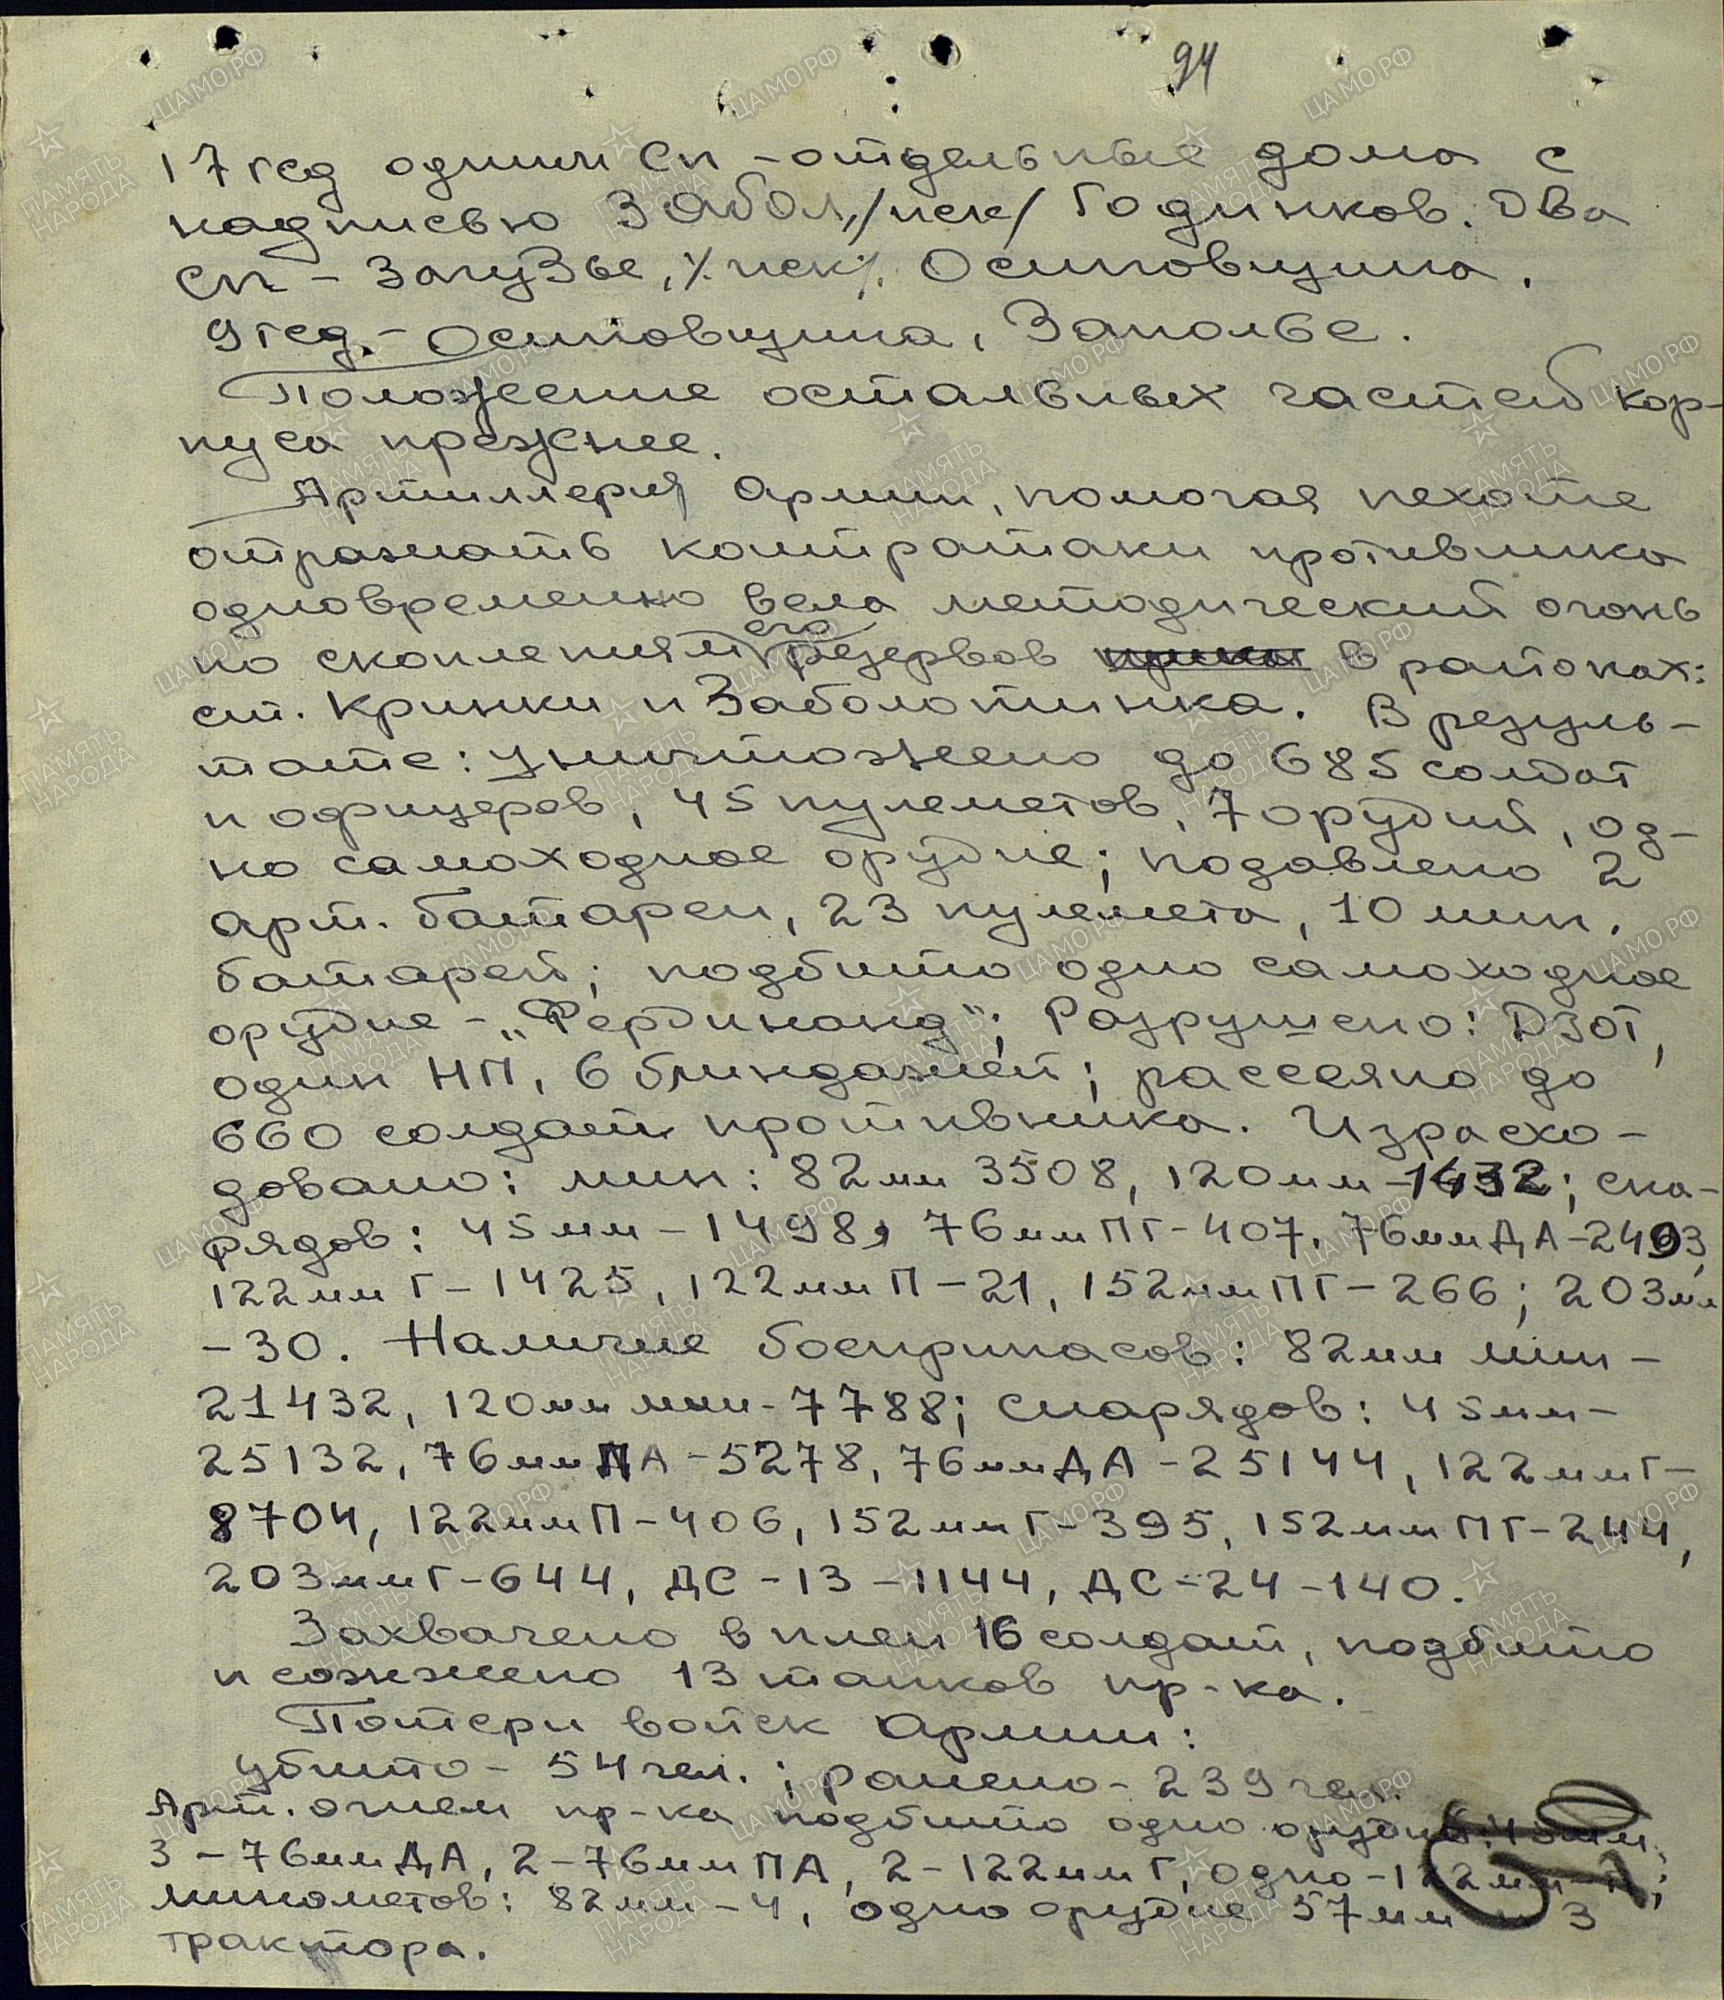 94
17 гсд одним сп - отдельные дома с
надписью Забол,/иск/ Годинков. Два
сп - Загузье, /.иск/. Осиповщина.
9 гсд. - Осиповщина, Заполье.
Положение остальных частей кор-
пуса прежнее.
Артиллерия Армии, помогая пехоте
отражать контратаки противника
одновременно вела методический огонь
по скоплениям его резервов в районах:
ст. Кринки и Заболотинка. В резуль-
тате: уничтожено до 685 солдат
и офицеров, 45 пулеметов, 7 орудий, од-
но самоходное орудие; подавлено 2
арт. батареи, 23 пулемета, 10 мин.
батарей; подбито одно самоходное
орудие - „Фердинанд"; Разрушено: ДЗОТ,
один НП, 6 блиндажей; рассеяно до
660 солдат противника. Израсхо-
довано: мин: 82мм 3508, 120мм - 1632; сна-
рядов: 45мм - 1498, 76мм ПГ - 407, 76мм ДА - 2493,
122мм Г - 1425, 122мм П - 21, 152мм ПГ - 266; 203мм
- 30. Наличие боеприпасов: 82мм мин -
21432, 120мм мин - 7788; снарядов: 45мм -
25132, 76мм ПА - 5278, 76мм ДА - 25144, 122мм Г -
8704, 122мм П - 406, 152мм Г - 395, 152мм ПГ - 244,
203мм Г - 644, ДС - 13 - 1144, ДС - 24 - 140.
Захвачено в плен 16 солдат, подбито
и сожжено 13 танков пр-ка.
Потери войск Армии:
убито - 54 чел.; ранено - 239 чел.
Арт. огнем пр-ка подбито одно орудие: 45мм,
3 - 76мм ДА, 2 - 76мм ПА, 2 - 122мм Г, одно - 122мм - П;
минометов: 82мм - 4, одно орудие 57мм и 3
трактора.